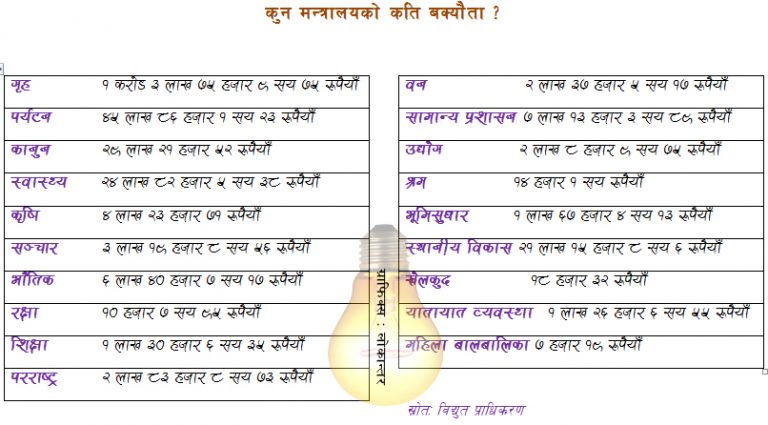 कुन मन्त्रालयको कति बक्यौता ?
गृह १ करोड ३ लाख ७५ हजार ९ सय ७५ रूपैयाँ
पर्यटन ४५ लाख ८६ हजार १ सय २३ रूपैयाँ
कानुन २९ लाख २१ हजार ५२ रूपैयाँ
स्वास्थ्य २४ लाख ८२ हजार ५ सय ३८ रूपैयाँ
कृषि ४ लाख २३ हजार ७१ रूपैयाँ
सञ्चार ३ लाख १९ हजार ८ सय ५६ रूपैयाँ
भौतिक ६ लाख ४० हजार ७ सय १७ रूपैयाँ
रक्षा १० हजार ७ सय ९५ रूपैयाँ
शिक्षा १ लाख ३० हजार ६ सय ३५ रूपैयाँ
परराष्ट्र २ लाख ८३ हजार ८ सय ७३ रूपैयाँ
वन २ लाख ३७ हजार ५ सय १७ रूपैयाँ
सामान्य प्रशासन ७ लाख १३ हजार ३ सय ८९ रूपैयाँ
उद्योग २ लाख ८ हजार ९ सय ७५ रूपैयाँ
श्रम १४ हजार १ सय रूपैयाँ
भूमिसुधार १ लाख ६७ हजार ४ सय १३ रूपैयाँ
स्थानीय विकास २१ लाख १५ हजार ८ सय ६ रूपैयाँ
खेलकुद १८ हजार ३२ रूपैयाँ
यातायात व्यवस्था १ लाख २६ हजार ६ सय ५५ रूपैयाँ
महिला बालबालिका ७ हजार १९ रूपैयाँ
ग्राफिक्स : लोकान्तर
स्रोत: विद्युत प्राधिकरण